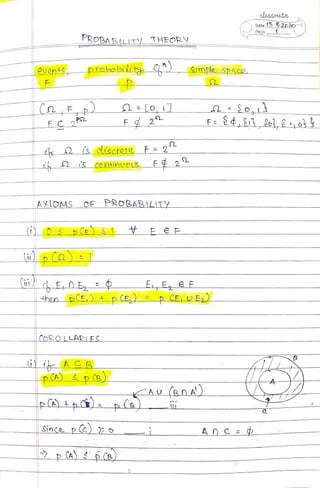 discrete
Date 13.8.2020
Page 1
PROBABILITY THEORY
events, probability (fn), Simple space
F p Ω
(Ω, F, p) Ω = [0, 1] Ω = {0, 1}
F ⊆ 2^Ω F ⊄ 2^Ω F = {φ, {1}, {0}, {0, 1}}
if Ω is discrete F = 2^Ω
if Ω is continuous F ⊄ 2^Ω
AXIOMS OF PROBABILITY
(i) 0 ≤ p(E) ≤ 1 ∀ E ∈ F
(ii) p(Ω) = 1
(iii) if E₁ ∩ E₂ = φ E₁, E₂ ∈ F
then p(E₁) + p(E₂) = p(E₁ ∪ E₂)
COROLLARIES
(i) if A ⊆ B
p(A) ≤ p(B)
B
A
A ∪ (B ∩ A')
p(A) + p(C) = p(B) iii
C
Since p(C) ≥ 0 i A ∩ C = φ
⇒ p(A) ≤ p(B)